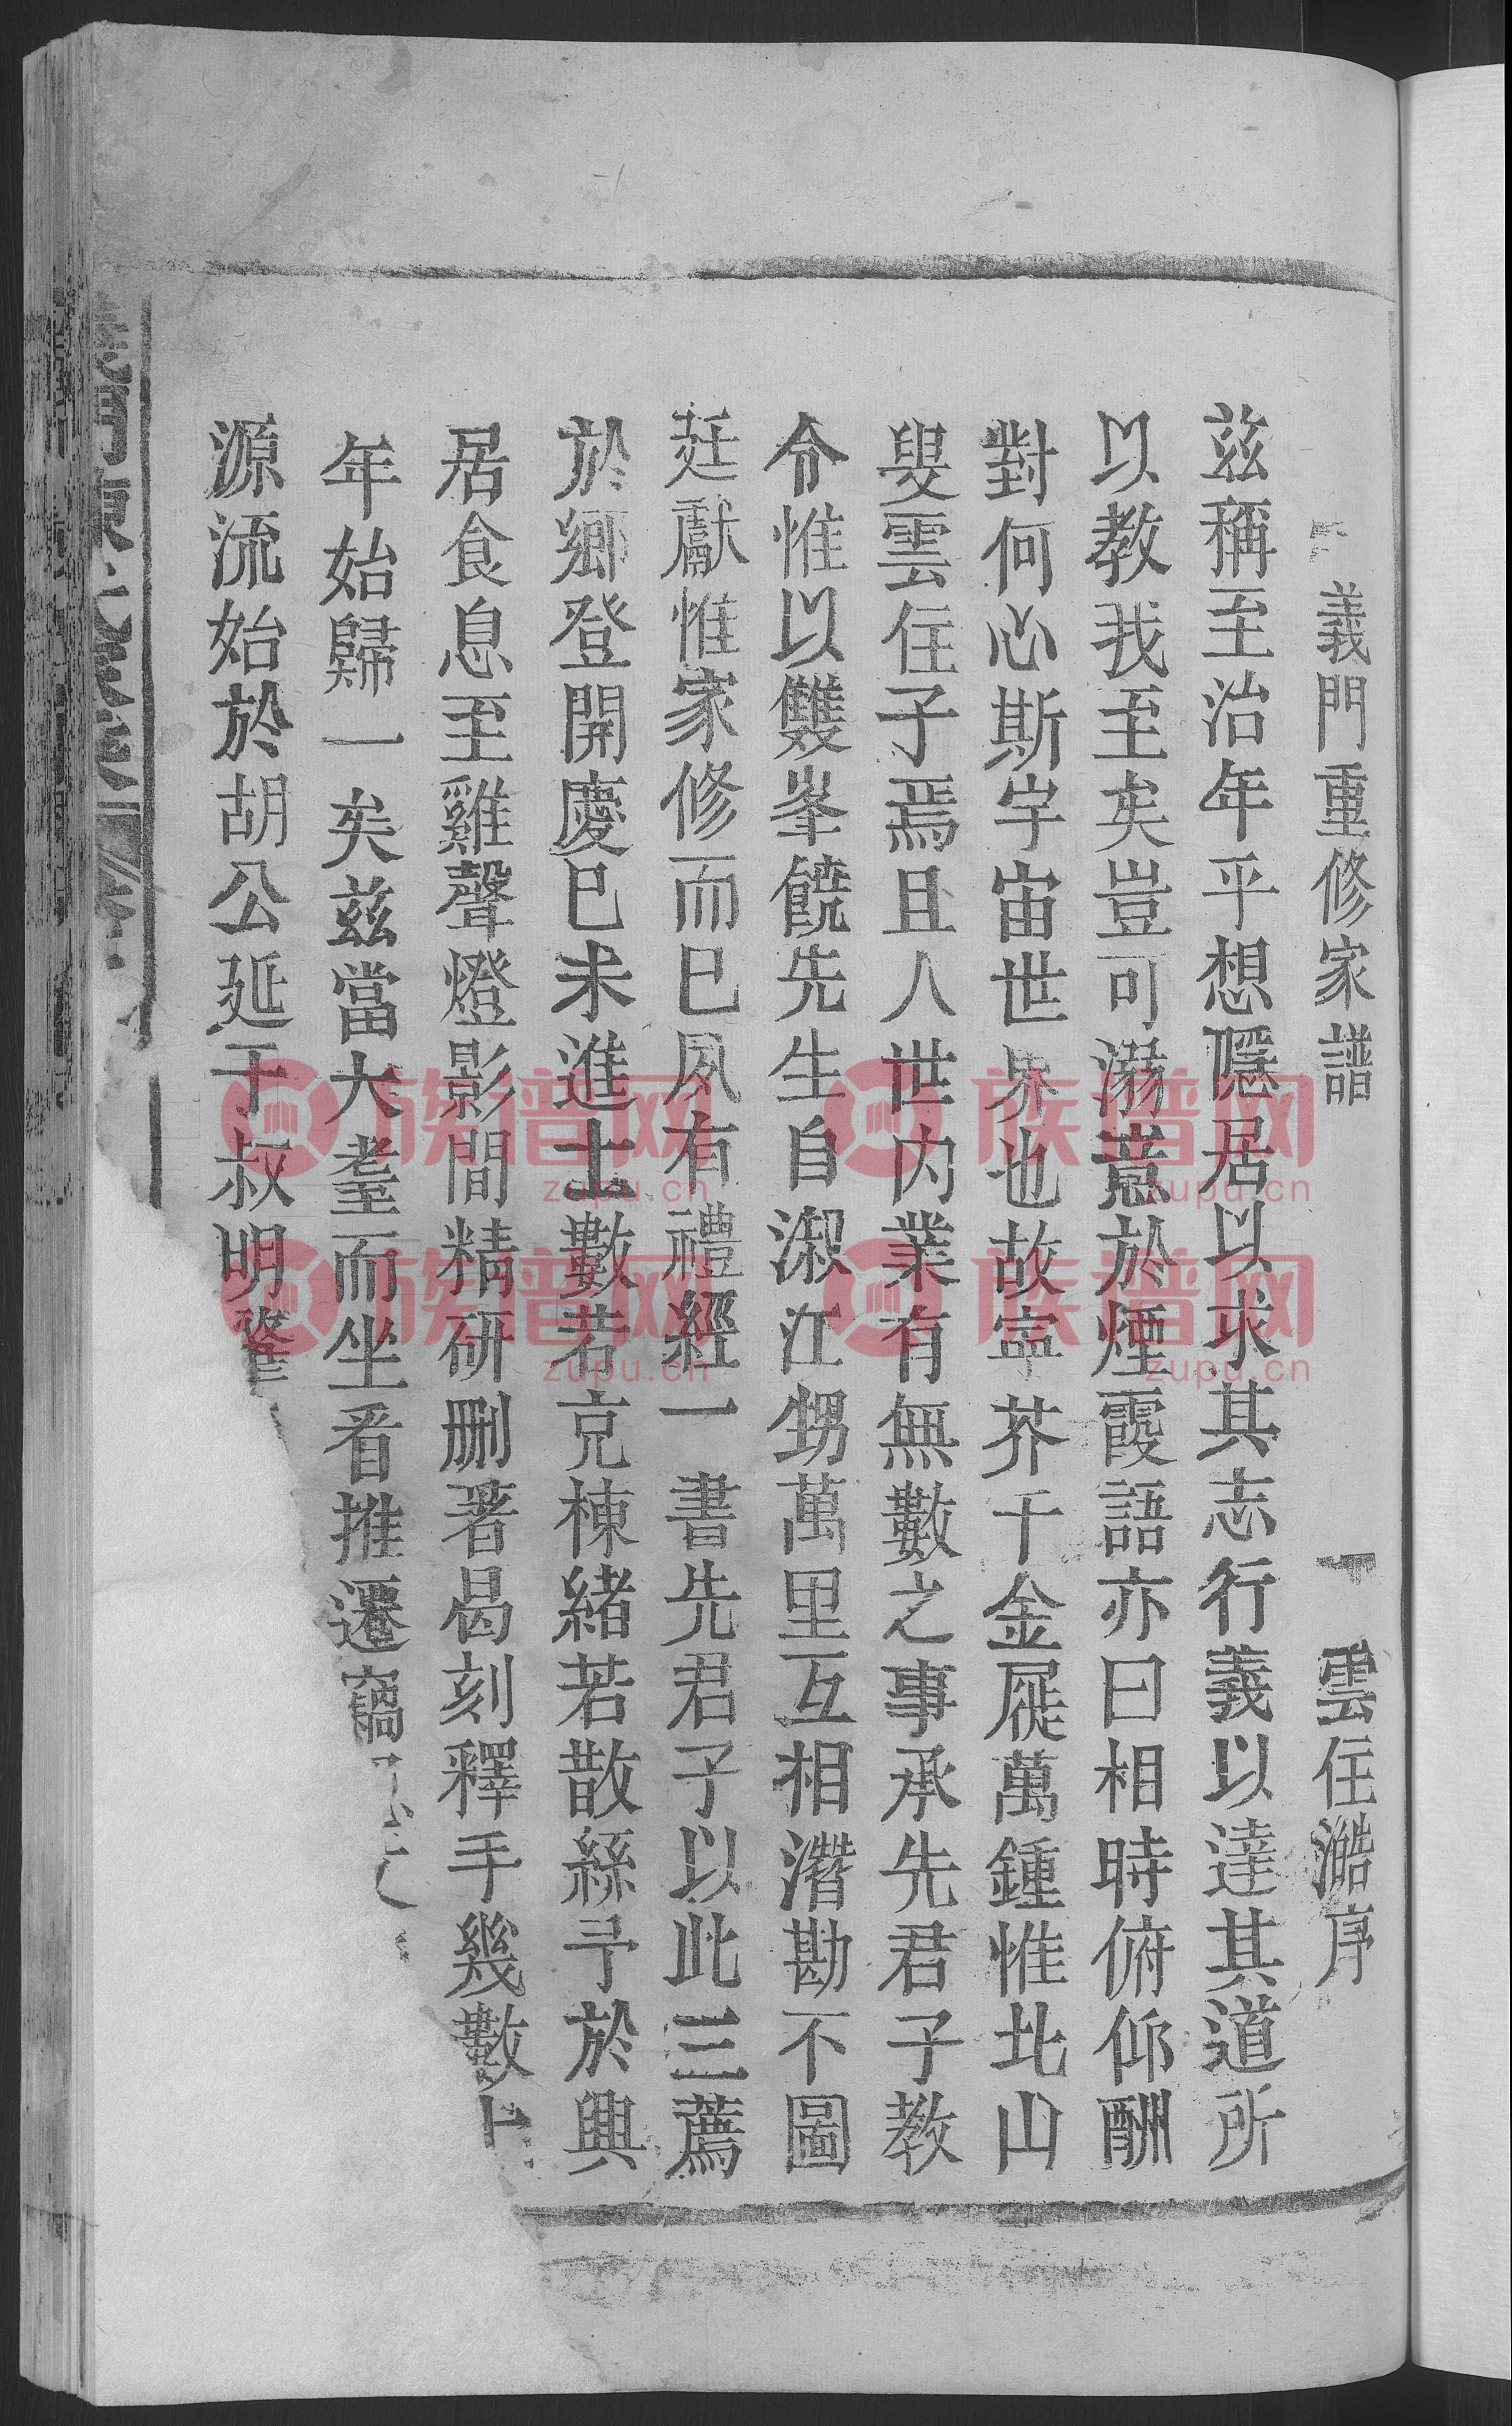 義門重修家譜 雲住澔序
茲稱至治年平想隱居以求其志行義以達其道所
以教我至矣豈可溺意於煙霞語亦曰相時俯仰酬
對何心斯宇宙世界也故寧芥千金屣萬鍾惟北山
叟雲住子焉且人世内業有無數之事承先君子教
令惟以雙峯饒先生自淑江甥萬里互相潛勘不圖
廷獻惟家修而已夙有禮經一書先君子以此三薦
於鄉登開慶巳未進士數若克棟緒若散絲予於興
居食息至雞聲燈影間精研删著曷刻釋手幾數十
年始歸一矣茲當大耋而坐看推遷竊
源流始於胡公延于叔明逢
族谱网
zupu.cn
族谱网
zupu.cn
族谱网
zupu.cn
族谱网
zupu.cn